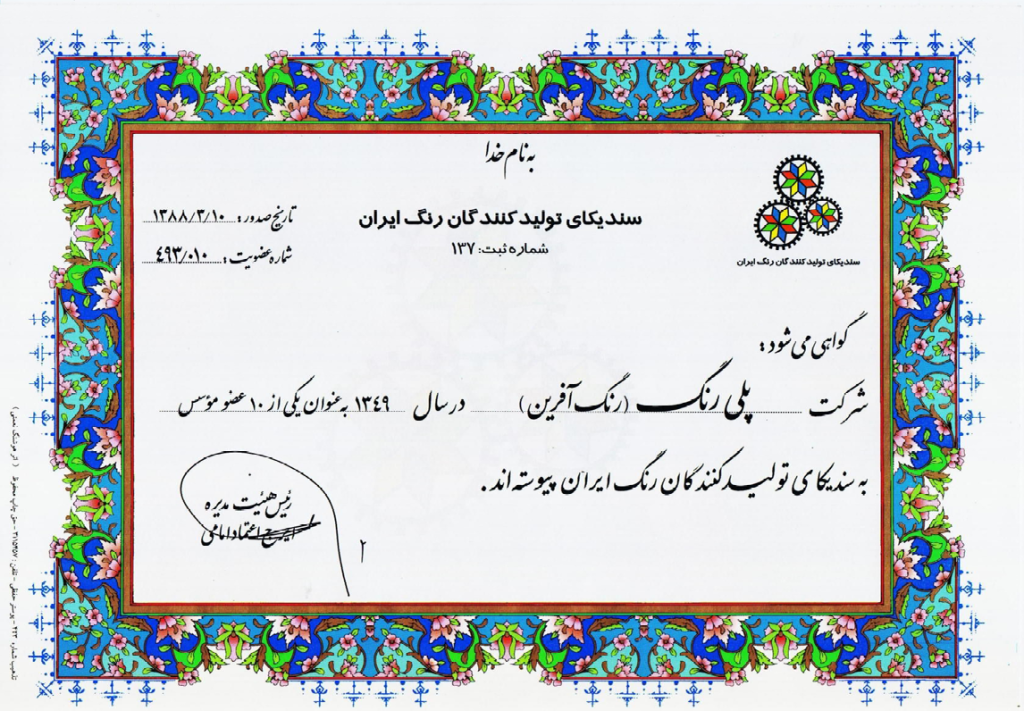 به نام خدا
سندیکای تولید کنندگان رنگ ایران
شماره ثبت: ۱۳۷
تاریخ صدور: ۱۳۸۸/۳/۱۰
شماره عضویت: ۴۹۳/۰۱۰
سندیکای تولید کنندگان رنگ ایران
گواهی می شود:
شرکت پلی رنگ (رنگ آفرین) در سال ۱۳۴۹ به عنوان یکی از ۱۰ عضو مؤسس
به سندیکای تولید کنندگان رنگ ایران پیوسته اند.
رئیس هیئت مدیره
ایرج اعتماد امامی